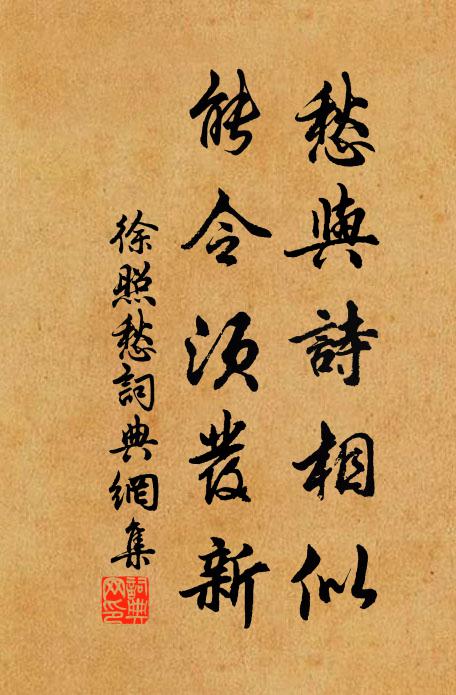 愁與詩相似
能令須發新
徐照愁詞典網集
詞典網印